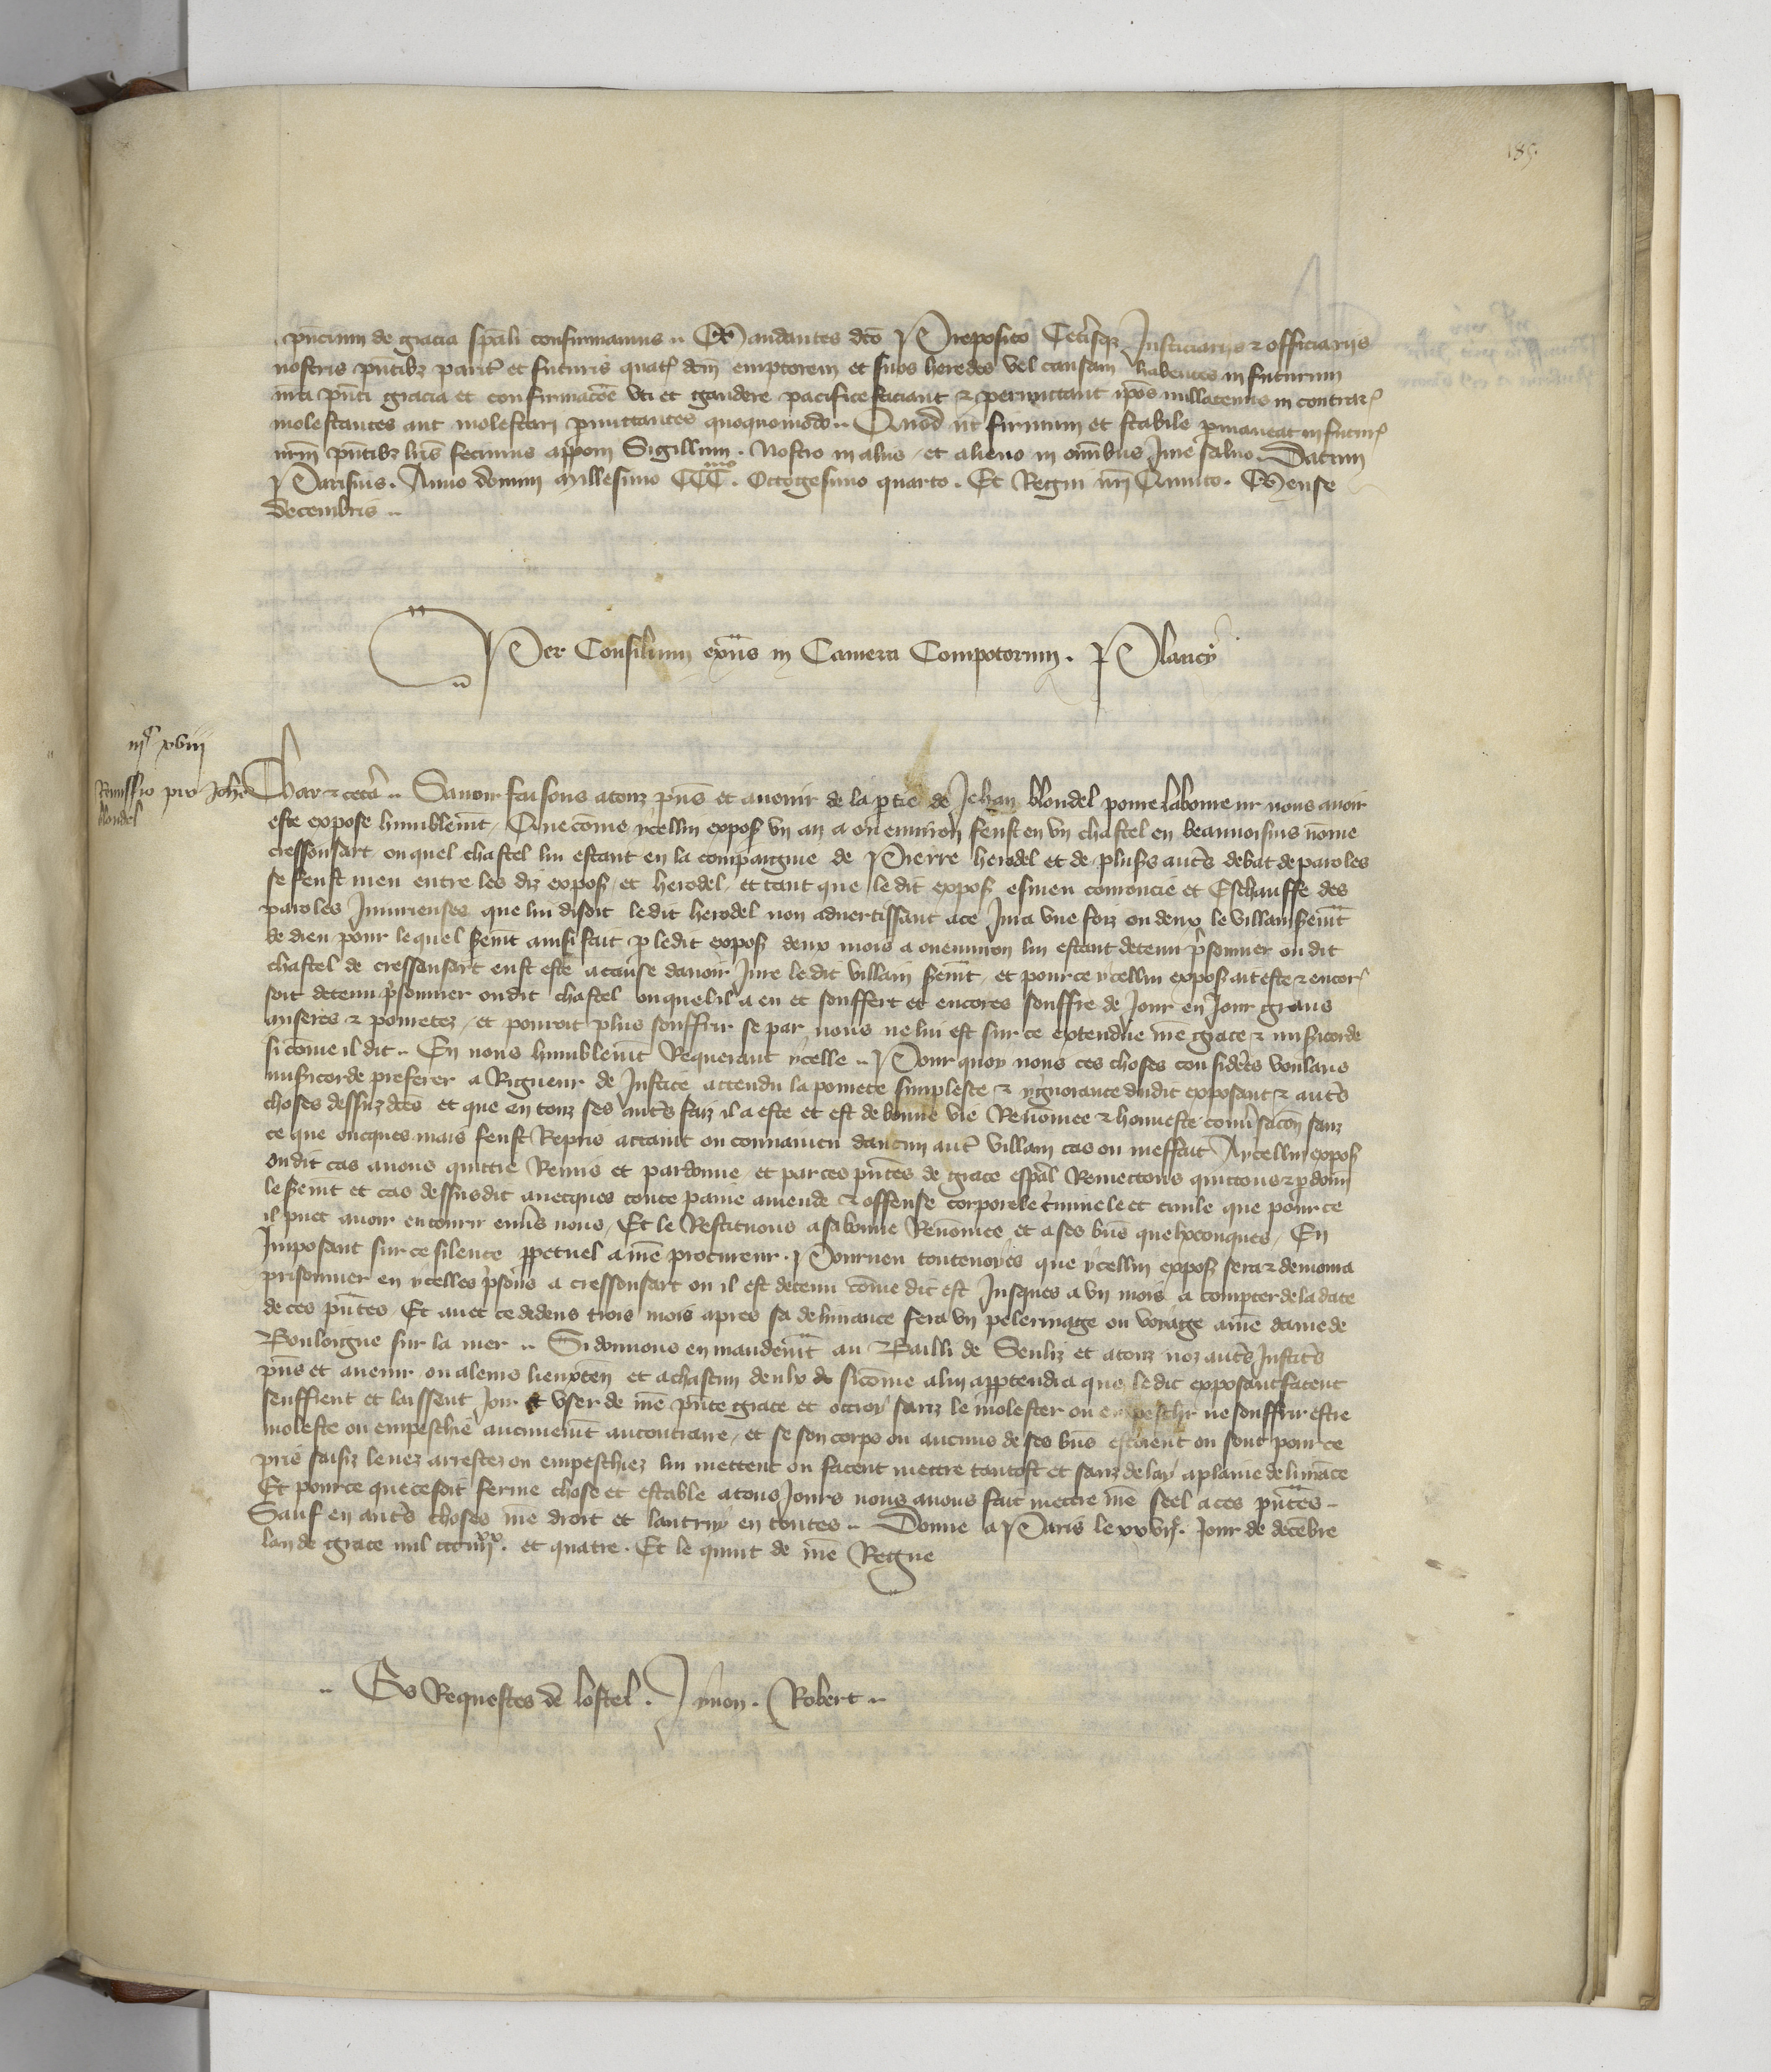 189
pñcium de gracia sp̃ali confirmamus .. Mandantes dc̃o Preposito Cet̃isq₃ Justiciarijs & officiarijs
nostris pñtib₃ parit̃ et futuris quat̃ dcm̃ emptorem et suos heredes vel causam habentes in futurum
nr̃a pñti gracia et confirmac̃oe vti et gaudere pacifice faciant & permittant ip̃os nullatenus in contrar̃
molestantes aut molestari pmittantes quoquomodo .. Quod ut firmum et stabile pmaneat in futur̃
nr̃m pñtib₃ lr̃is fecimus appõni Sigillum . Nostro in alijs et alieno in om̃ibus Jure saluo . Datum
Parisius . Anno domini Millesimo CCC.mo Octogesimo quarto . Et Regni nr̃i Quinto . Mense
decembris ..
Per Consilium exñs in Camera Compotorum . P Blancy
iijc xviij
Remissio pro Johe
blondel
Char & cetã .. Sauoir faisons a touz pñs et auenir de la ptie de Jehan blondel poure laboureur nous auoir
este expose humblem̃t / Que cõme ycellui expos̃ vn an a ou enuiron feust en vn chastel en beauuoisins nõme
cressonsart ou quel chastel lui estant en la compaignie de Pierre herodel et de plus̃s aut̃s debat de paroles
se feust meu entre les diz expos̃ et herodel / et tant que le dit expos̃ esmeu couroucie et Eschauffe des
paroles Iniurieuses que lui disoit ledit herodel non aduertissant a ce Jura vne foiz ou deux le villain serm̃t
de dieu pour lequel serm̃t ainsi fait p ledit expos̃ deux mois a ou enuiron lui estant detenu p̃sonnier ou dit
chastel de cressonsart eust este a cause dauoir Jure le dit villain serm̃t / et pour ce ycellui expos̃ ait este & encor̃
soit detenu p̃sonnier ou dit chastel ou quel il a eu et souffert et encores souffre de Jour en Jour grans
miseres & pouretez / et pouroit plus souffrir se par nous ne lui est sur ce extendue nr̃e grace & mis̃icorde
si cõme il dit .. En nous humblem̃t Requerant ycelle .. Pour quoy nous ces choses considẽes voulans
mis̃icorde preferer a Rigueur de Justice attendu la pourete simplesce & ygnorance dudit exposant & aut̃s
choses dessuz dc̃es et que en touz ses aut̃s faiz il a este et est de bonne vie Renõmee & honneste conu̾sac̃on sanz
ce que oncques mais feust Repris actaint ou conuaincu daucun aut̃ villain cas ou meffait A ycellui expos̃
ou dit cas auons quictie Remis et pardonne / et par ces pñtes de grace esp̃al Remectons quictons & pdonn̾
le serm̃t et cas dessus dit auecques toute paine amende & offense corporele c̃minele et ciuile que pour ce
il puet auoir encouru enu̾s nous / Et le Restituons a sa bonne Renõmee et a ses biẽs quelxconques / En
Imposant sur ce silence ppetuel a nr̃e procureur . Pourueu touteuoyes que ycellui expos̃ sera & demorra
prisonnier en ycelles p̃sons a cressonsart ou il est detenu cõme dit est Jusques a vn mois a compter de la date
de ces pñtes Et auec ce dedens trois mois apres sa deliurance fera vn pelerinage ou voiage a nr̃e dame de
Bouloigne sur la mer .. Si donnons en mandem̃t au Bailli de Senliz et a touz noz aut̃s Justic̃s
pñs et auenir ou a leurs lieuxten̾ et a chascun deulx si cõme a lui appartendra que le dit exposant facent
seuffrent et laissent Joir et vser de nr̃e pñte grace et ottroy sanz le molester ou empeschr̃ ne souffrir estre
moleste ou empeschie aucunem̃t au contraire / et se son corps ou aucuns de ses biẽs estoient ou sont pour ce
pris saisiz leuez arrestez ou empeschiez lui mettent ou facent mettre tantost et sanz delay a plaine deliurãce
Et pour ce que ce soit ferme chose et estable a tous Jours nous auons fait mettre nr̃e seel a ces pñtes ..
Sauf en aut̃s choses nr̃e droit et lautruy en toutes .. Donne a Paris le xxvij.e Jour de decẽbre
lan de grace mil ccciiij.xx et quatre . Et le quint de nr̃e Regne
.. Es Requestes de lostel . J. ymon . Robert ..